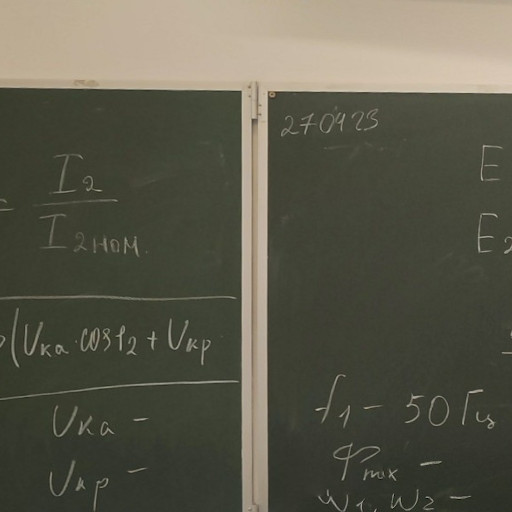 I₂
I₂ном.
(Uка·cosφ₂ + Uкр
Uка –
Uкр –
270423
E
E₂
f₁ – 50 Гц
Φmax –
w₁, w₂ –